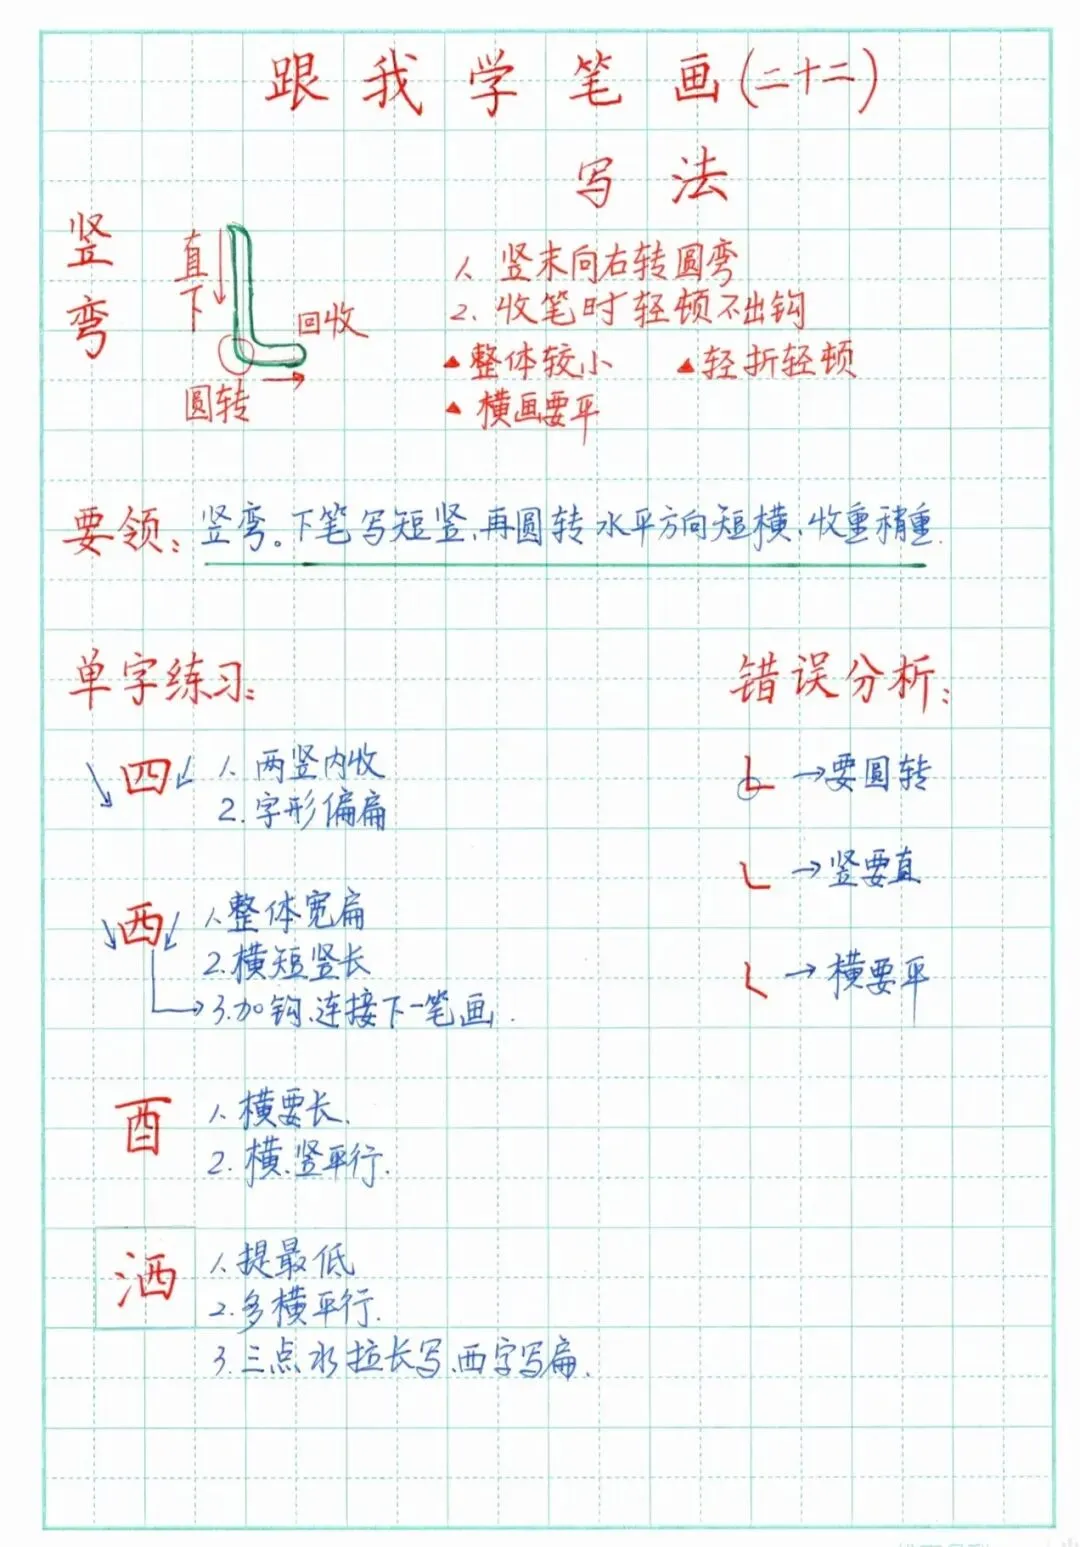 跟我学笔画(二十二)
写法
竖弯
直下
回收
圆转
1、竖末向右转圆弯
2、收笔时轻顿不出钩
▲整体较小 ▲轻折轻顿
▲横画要平
要领：竖弯。下笔写短竖、再圆转水平方向短横、收重稍重.
单字练习：
四
1、两竖内收
2.字形偏扁
西
1、整体宽扁
2.横短竖长
3.加钩、连接下一笔画.
酉
1、横要长.
2.横、竖平行.
洒
1、提最低
2.多横平行.
3.三点水拉长写、西字写扁.
错误分析：
→要圆转
→竖要直
→横要平